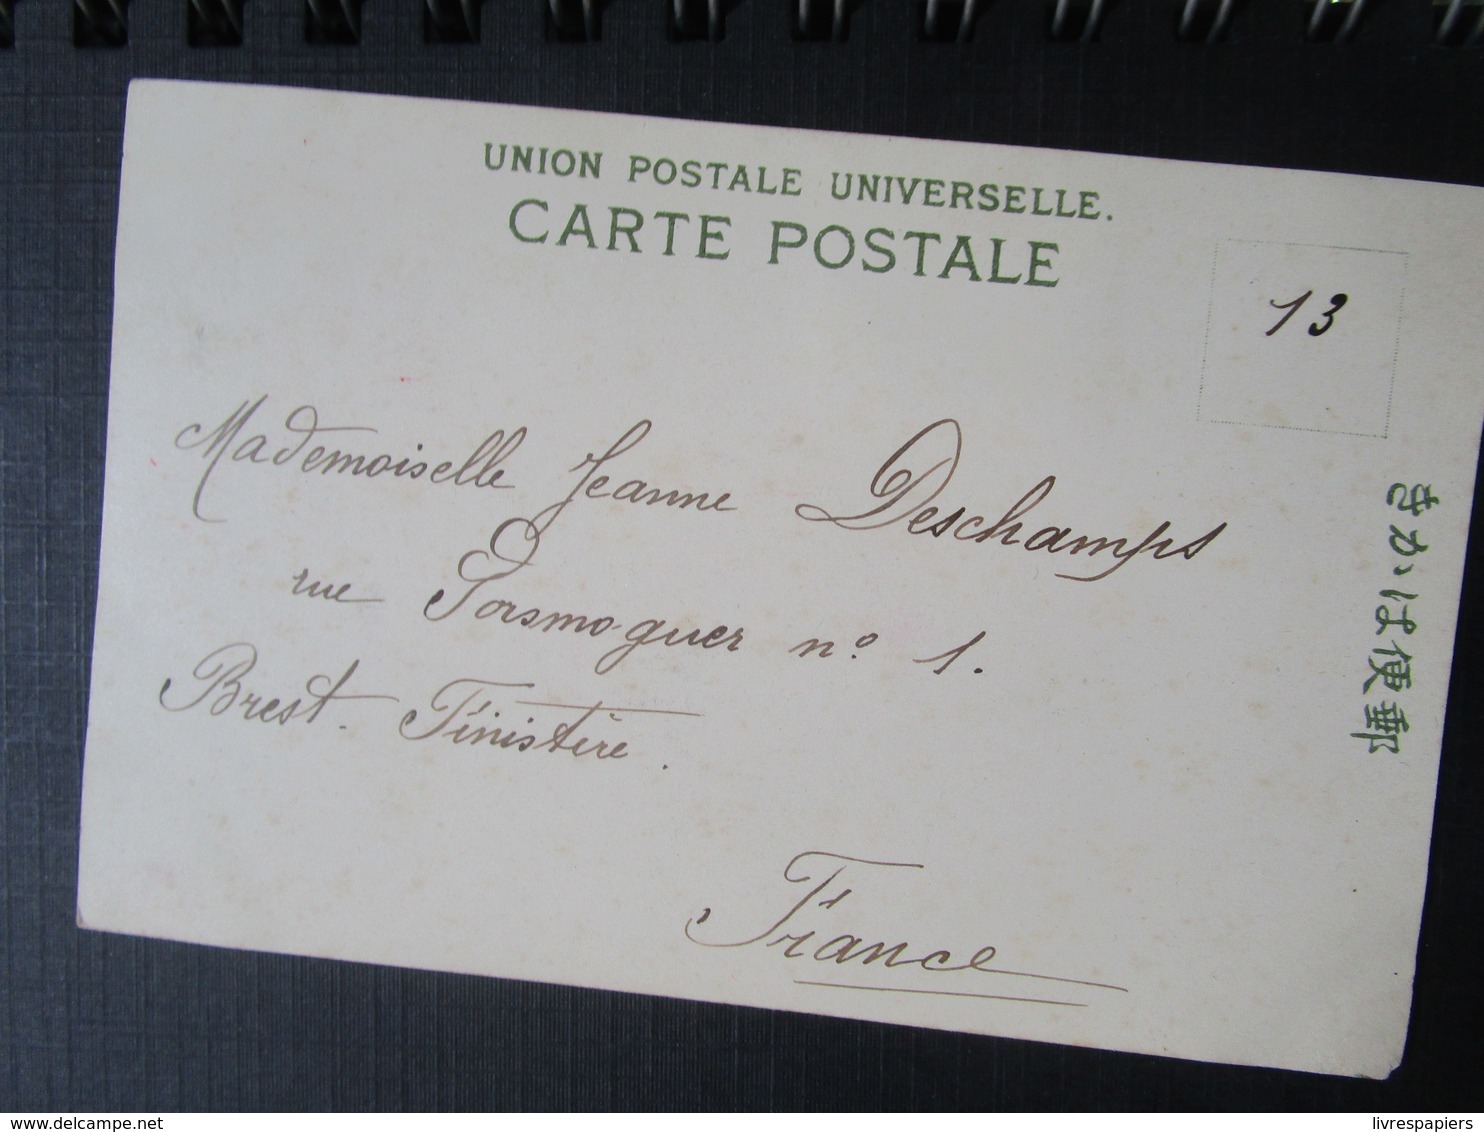 UNION POSTALE UNIVERSELLE.
CARTE POSTALE
13
Mademoiselle Jeanne Deschamps
rue Porsmoguer nº 1.
Brest. Finistère.
France
きかは便郵
delcampe.net
livrespapiers